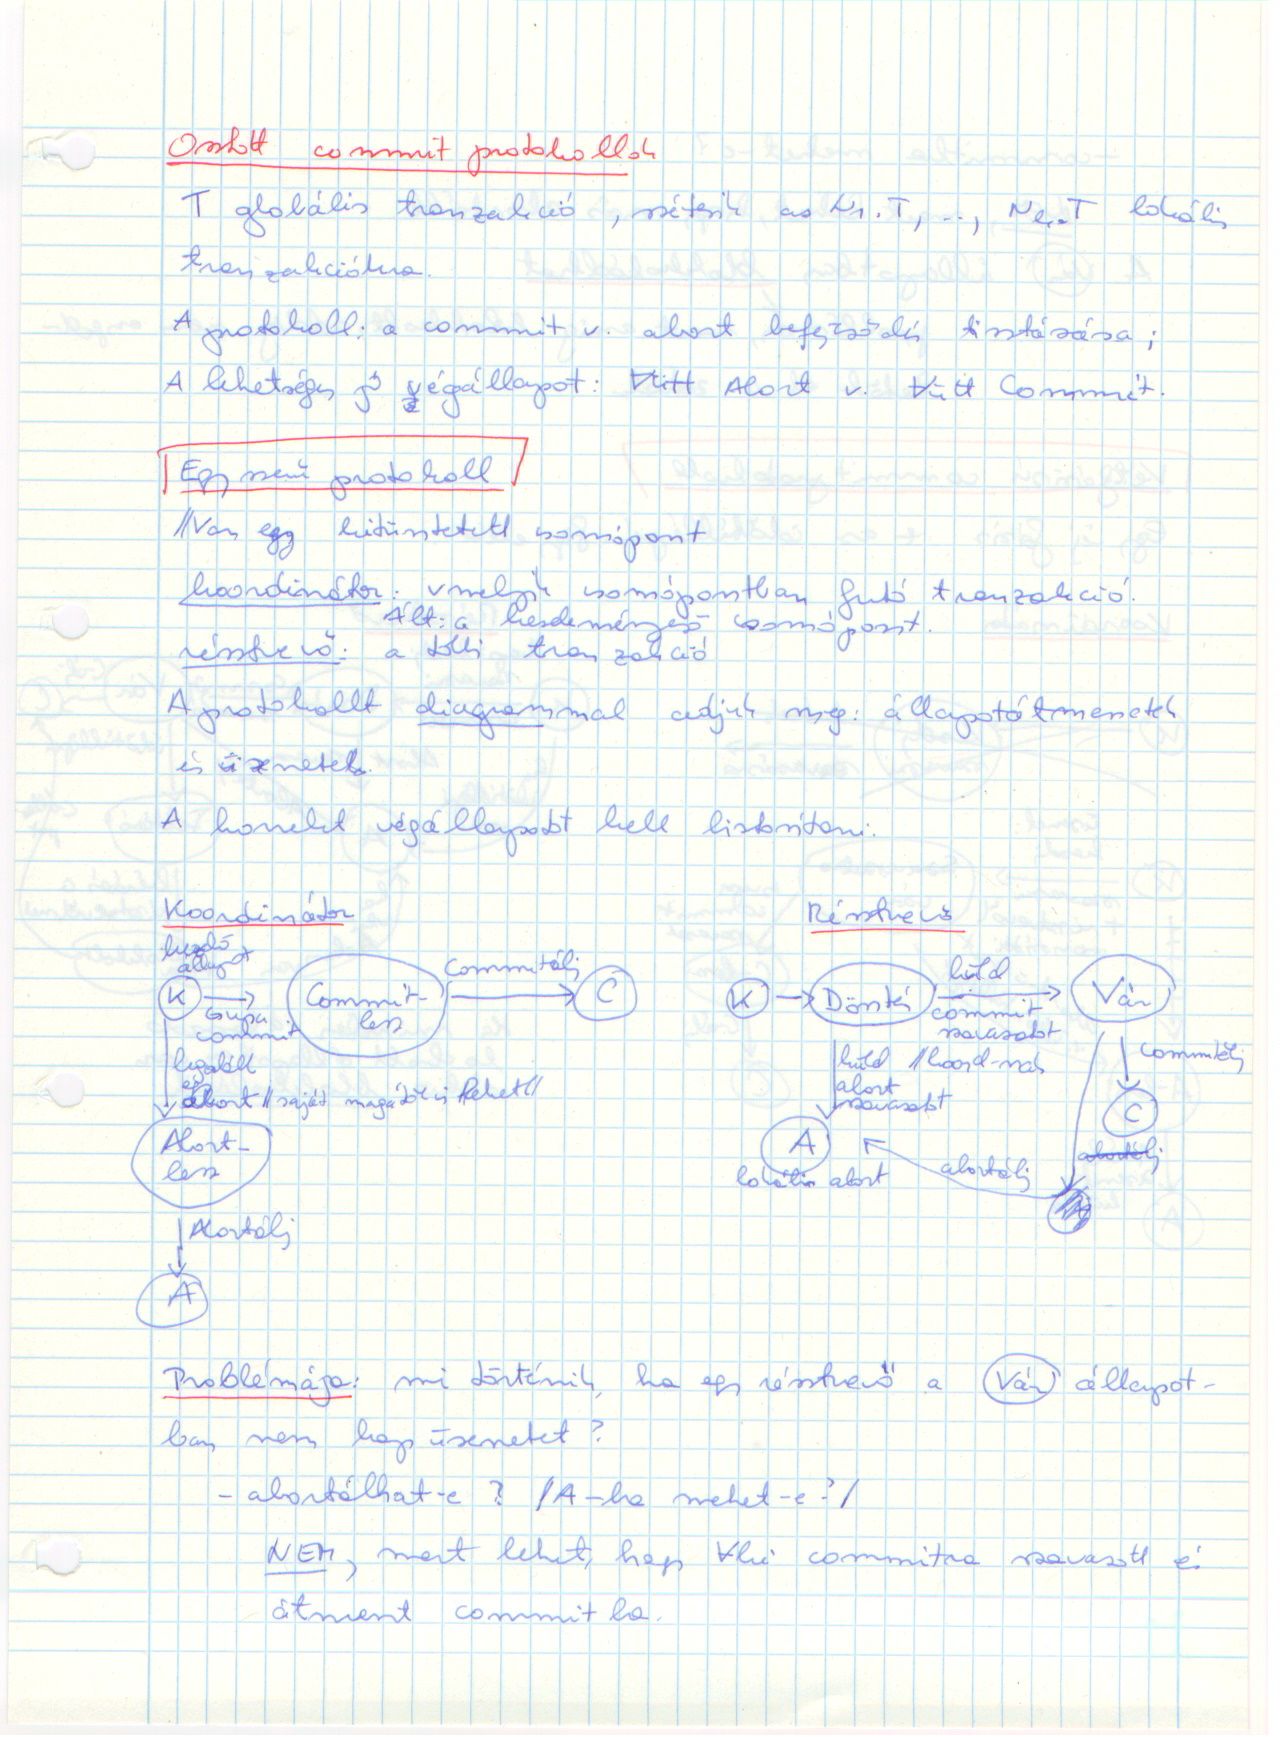 Osztott commit protokollok
T globális tranzakció, szétesik az N1.T, ..., Nk.T lokális
tranzakciókra.
A protokoll: a commit v. abort befejeződés tisztázása;
A lehetséges jó végállapot: ∀itt Abort v. ∀itt Commit.
Egyszerű protokoll
//Van egy kitüntetett csomópont
koordinátor: vmelyik csomópontban futó tranzakció.
Ált: a kezdeményező csomópont.
résztvevő: a többi tranzakció
A protokollt diagrammal adjuk meg: állapotátmenetek
és üzenetek.
A korrekt végállapotot kell biztosítani.
Koordinátor
kezdő
állapot
K
csupa
commit
Commit-
lesz
Commitálj
C
legalább
egy
abort //saját magától is lehet//
Abort-
lesz
Abortálj
A
Résztvevő
K
Döntés
küld
commit
szavazatot
Vár
küld //koord-nak
abort
szavazatot
A
lokális abort
Commitálj
C
abortálj
abortálj
Problémája: mi történik, ha egy résztvevő a Vár állapot-
ban nem kap üzenetet?
- abortálhat-e? /A-ba mehet-e?/
NEM, mert lehet, hogy ∀ki commitra szavazott és
átment commitba.